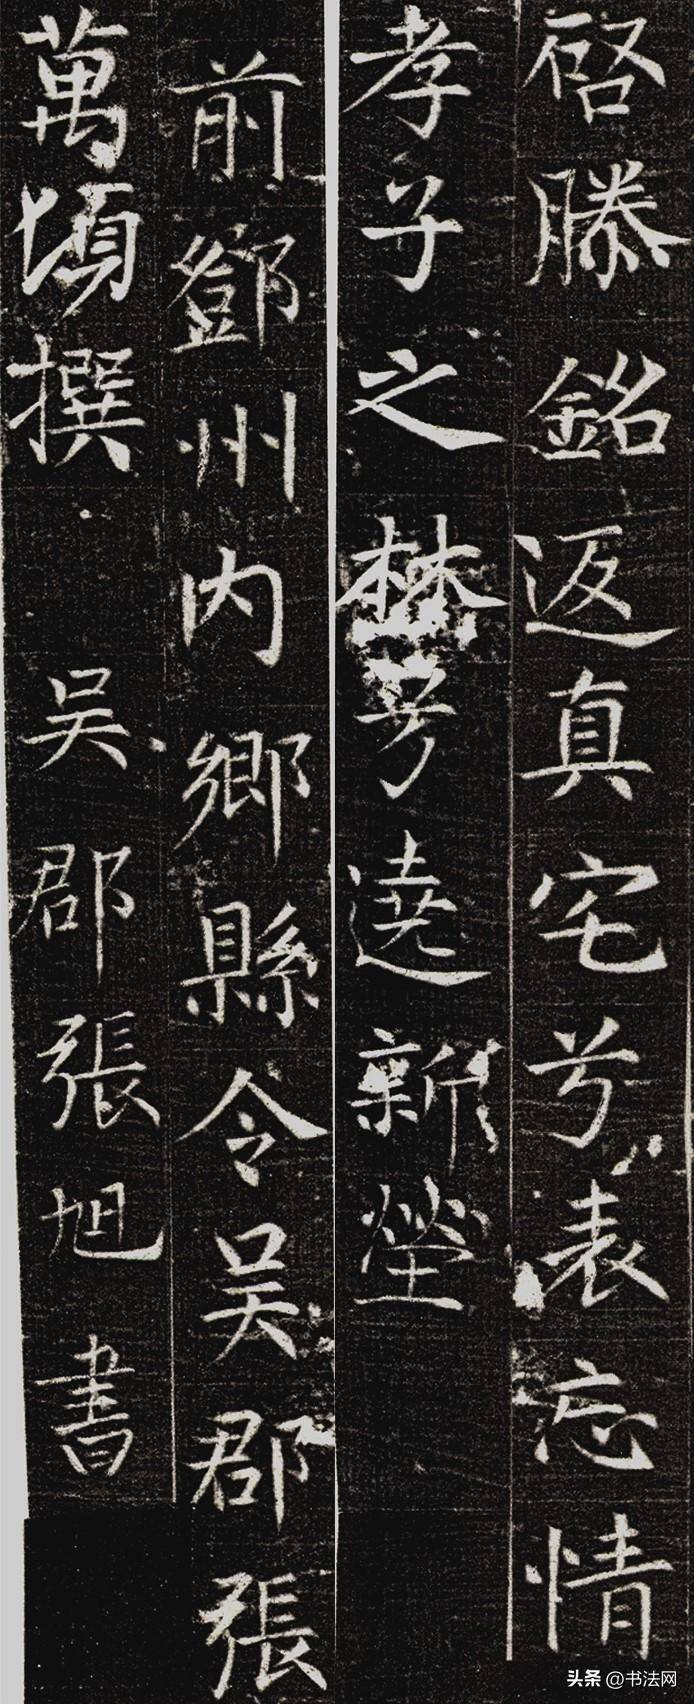 啓滕銘返真宅兮表忘情
孝子之林兮遶新塋
前鄧州内鄉縣令吴郡張
萬頃撰 吴郡張旭書
头条@书法网